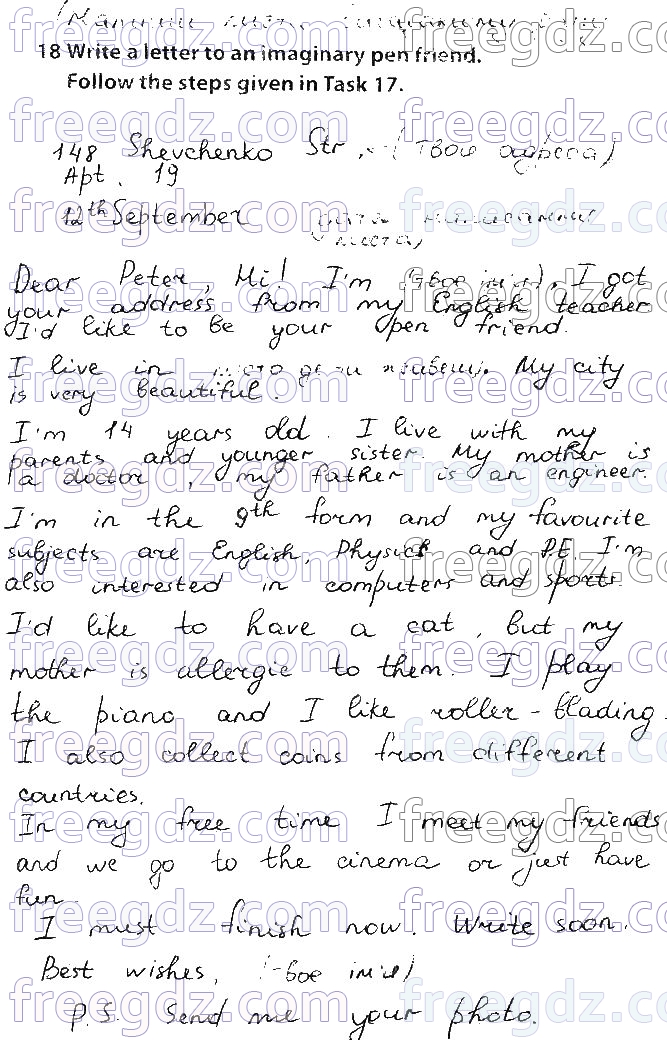 18 Write a letter to an imaginary pen friend.
Follow the steps given in Task 17.
148 Shevchenko Str. (твоя адреса)
Apt. 19
12th September (дата написання
листа)
Dear Peter, Hi! I'm (твоє ім'я). I got
your address from my English teacher
I'd like to be your pen friend.
I live in місто де ти живеш). My city
is very beautiful.
I'm 14 years old. I live with my
parents and younger sister. My mother is
a doctor, my father is an engineer.
I'm in the 9th form and my favourite
subjects are English, Physics and PE. I'm
also interested in computers and sports.
I'd like to have a cat, but my
mother is allergic to them. I play
the piano and I like roller-blading.
I also collect coins from different
countries.
In my free time I meet my friends
and we go to the cinema or just have
fun.
I must finish now. Write soon.
Best wishes, (твоє ім'я)
P.S. Send me your photo.
freegdz.com